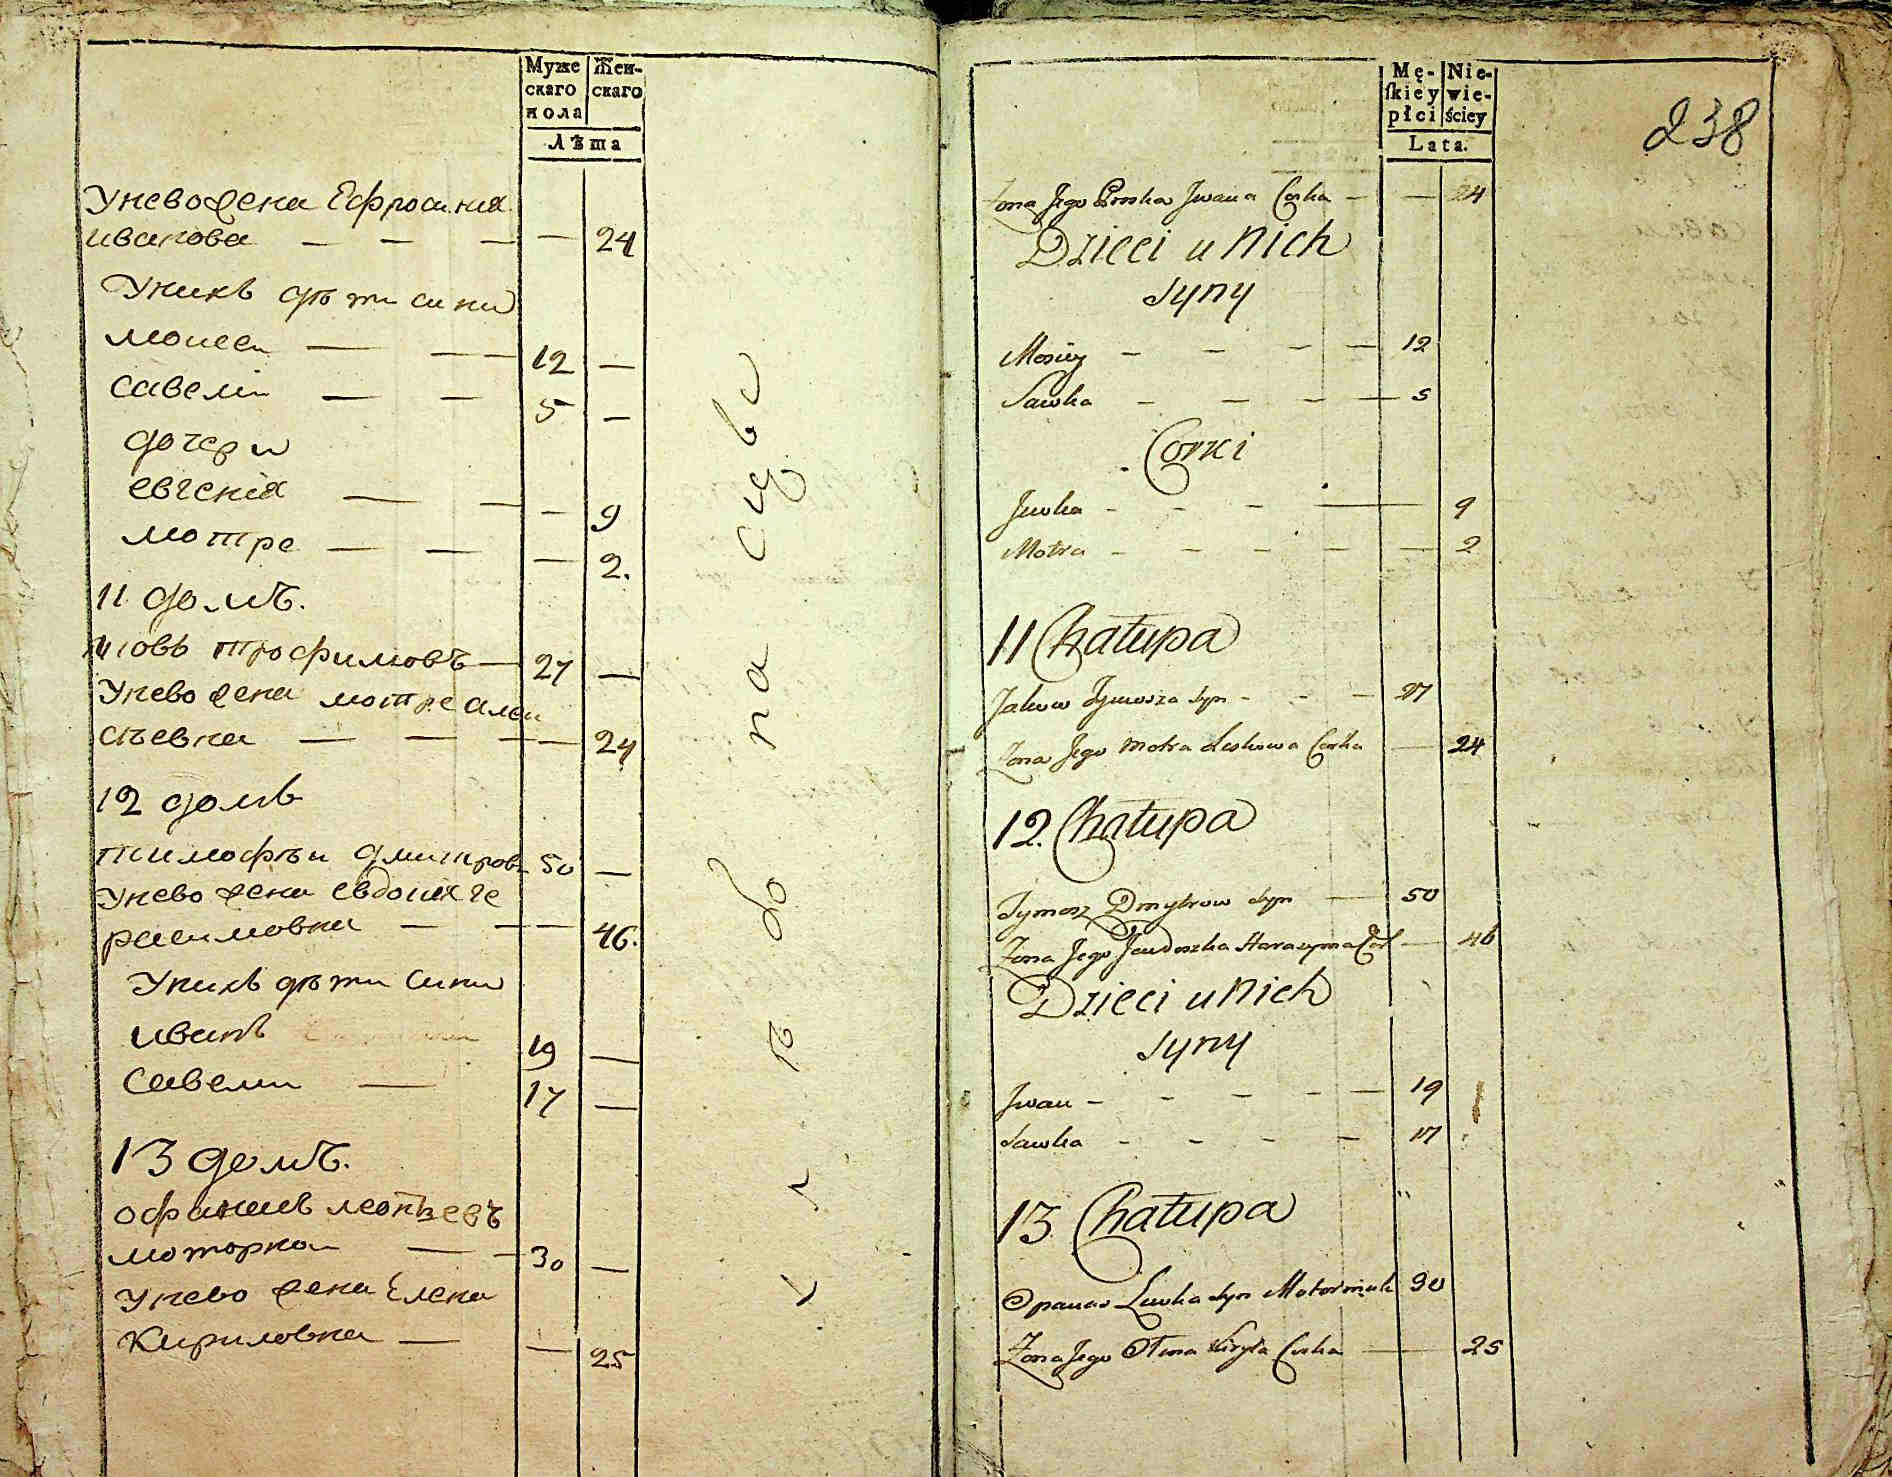 Муже
скаго
пола
Жен-
скаго
Лѣта
Унево жена Ефросиния
иванова — — — — 24
Унихъ дѣти сини
моисеи — — — 12 —
савели — — 5 —
дочери
евгения — — — 9
мотре — — — 2.
11 домъ.
иовъ трофимовъ — 27 —
Унево жена мотре алеѯ
сѣевна — — — — 24
12 домъ
тимофѣи дмитровъ 50 —
Унево жена евдокия ге
расимовна — — — 46.
Унихъ дѣти сини
иванъ 19 —
савели — 17 —
13 домъ.
офанаси леонтьевъ
моторнои — — 30 —
Унево жена Елена
Кириловна — — 25
Mę-
ſkiey
płci
Nie-
wie-
ściey
Lata.
238
Zona Jego Proska Jwana Corka — — 24
Dzieci u Nich
Syny
Mosiey — — — — 12
Sawka — — — — 5
Corki
Jewka — — — — 9
Motra — — — — — 2
11 Chałupa
Jakow Tymosza Syn — — — 27
Zona Jego Motra Leskowa Corka — 24
12. Chałupa
Tymosz Dmytrow Syn — 50
Zona Jego Jewdoszka Harasyma Cor — 46
Dzieci u Nich
Syny
Jwan — — — — — 19
Sawka — — — — 17
13 Chałupa
Opanas Lewka Syn Motorniuk 30
Zona Jego Ołena Kiryła Corka — 25